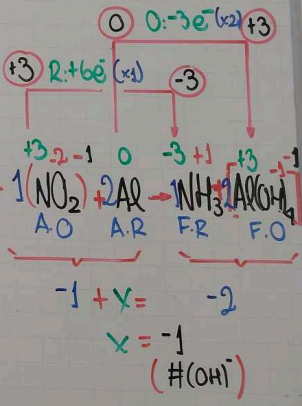 0 O:-3e⁻(x2) +3
+3 R:+6e⁻(x1) -3
+3 -2 -1 0 -3 +1 +3 -1 -1
1(NO₂)+2Al→1NH₃+2[Al(OH)₄
A.O A.R F.R F.O
-1 + x = -2
x = -1
(#(OH)⁻)